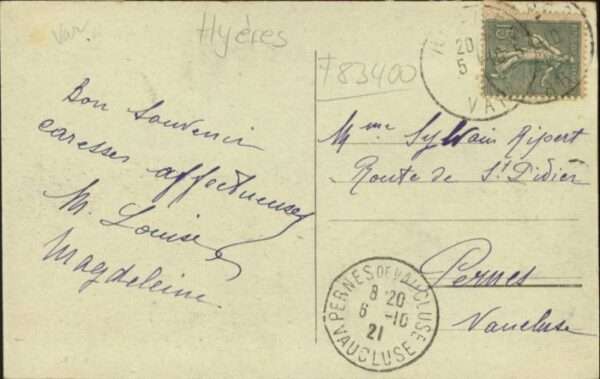 Var
Hyères
83400
Bon Souvenir
caresses affectueuses
M. Louise
Magdeleine
20
5
VAR
15
Mme Sylvain Ripert
Route de St Didier
Pernes
Vaucluse
PERNES DE VAUCLUSE
8 20
6 -10
21
VAUCLUSE